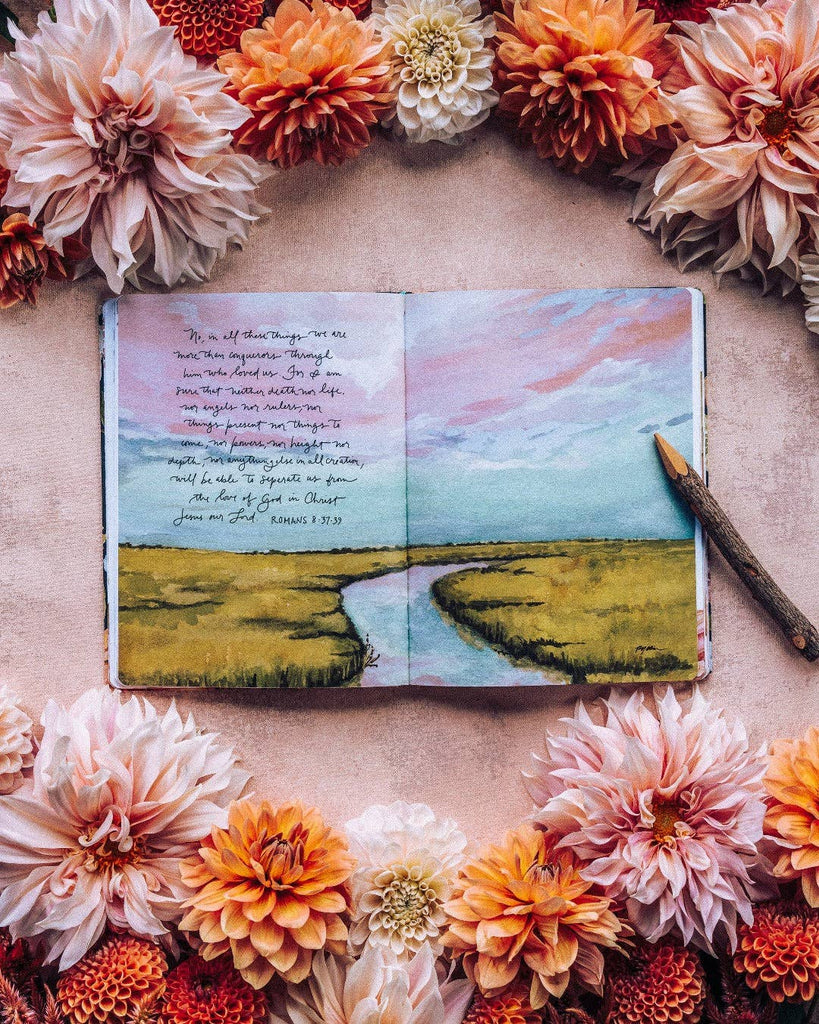 No, in all these things we are
more than conquerors through
him who loved us. For I am
sure that neither death nor life,
nor angels nor rulers, nor
things present nor things to
come, nor powers, nor height nor
depth, nor anything else in all creation,
will be able to seperate us from
the love of God in Christ
Jesus our Lord. ROMANS 8:37-39